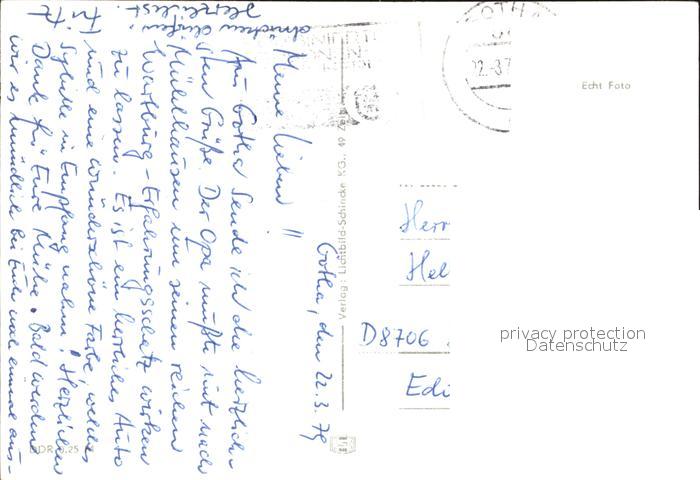 Gotha, den 22.3.79
Meine Lieben !!
Aus Gotha sende ich die herzlich-
sten Grüße. Der Opa mußte mit nach
Mühlhausen um seinen reichen
Wartburg-Erfahrungsschatz wirken
zu lassen. Es ist ein herrliches Auto
und eine wunderschöne Farbe, welches
Sybille in Empfang nahm! Herzlichen
Dank für Eure Mühe. Bald werden
wir es mündlich bei Euch noch einmal aus-
drücken dürfen.
Herzlichst.
Verlag: Lichtbild-Schincke KG.,
DDR 0.25
GOTHA
22.-3.7
Echt Foto
Herr
Hel
D8706
Edi
privacy protection
Datenschutz